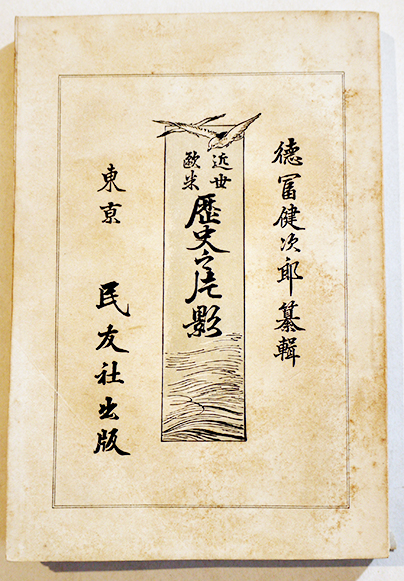 德冨健次郎纂輯
近世
歐米
歴史之片影
東京
民友社出版